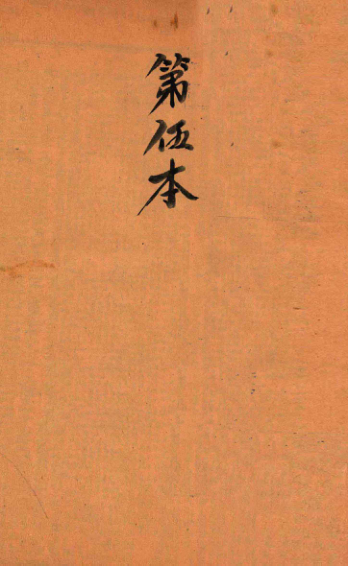 第伍本